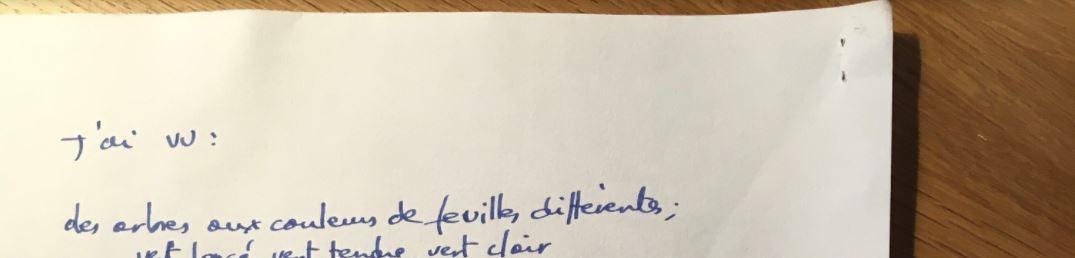 J'ai vu :
des arbres aux couleurs de feuilles différentes ;
vert foncé vert tendre vert clair